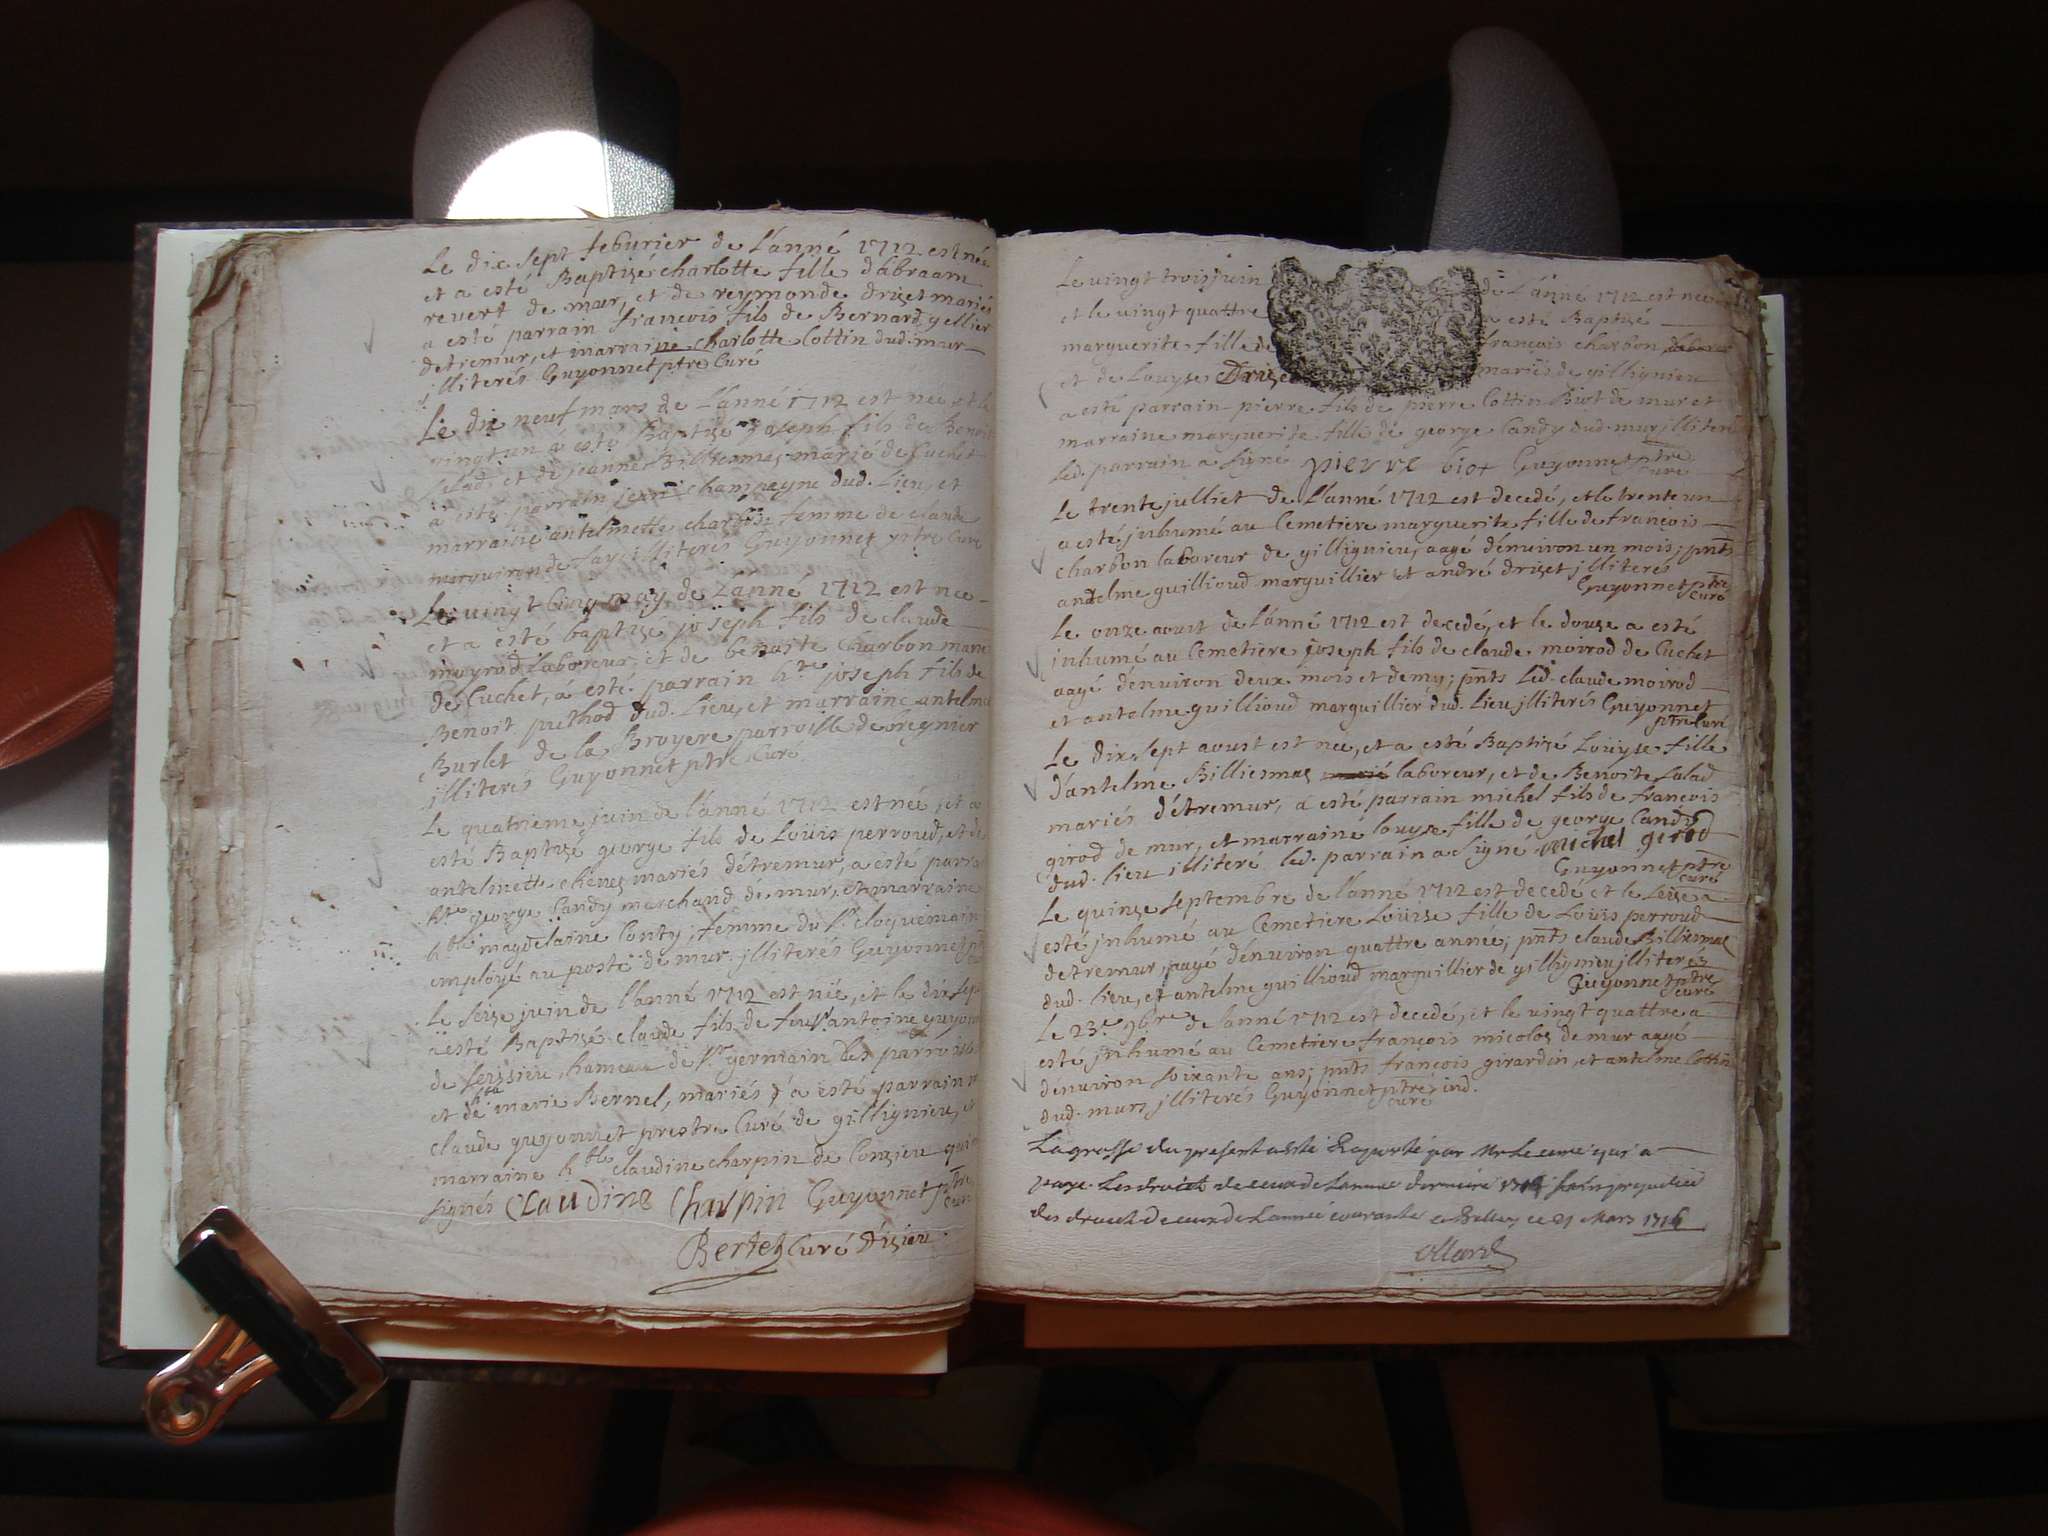 Le dix sept feburier de L'anné 1712 est née
et a esté Baptizé charlotte fille d'abraam
revert de mur, et de reymonde drizet mariés
a esté parrain françois fils de Bernard yellier
detremur, et marraine charlotte Cottin dud. mur
illiterés Guyonnet ptre Curé
Le dix neuf mars de L'anné 1712 est nee et le
vingt un a esté Baptizé Joseph fils de Benoit
Salad et de jeanne Billiesmaz marié de Cuchet
a esté parrain jean champagne dud. Lieu, et
marraine antelmette charbon femme de claude
illiterés Guyonnet ptre Curé
Le vingt Cinq may de L'anné 1712 est nee
et a esté baptize joseph fils de claude
moyrod Laboreur, et de benoite Charbon marié
de Cuchet, a esté parrain h.te joseph fils de
Benoit puthod dud. Lieu, et marraine antelme
Burlet de la Broyere parroisse de regnier
illiterés Guyonnet ptre Curé
Le quatrieme juin de L'anné 1712 est née, et a
esté Baptizé george fils de Loüis perroud, et de
antelmette chenez mariés détremur, a esté parra
h.te george Candy marchand de mur, et marraine
h.ble magdelaine Conty, femme du s.r cloquemain
employé au poste de mur. illiterés Guyonnet
Le seize juin de L'anné 1712 est née, et le dix sept
a esté Baptizé claude fils de feu s.r antoine guyon
de hameau de s.t germain les parroisse
et de marie Bernel, mariés, a esté parrain
claude guyonnet prestre Curé de gillignieu, et
marraine h.ble claudine charpin de Conzieu qui
signés CLaudine Charpin Guyonnet ptre curé
Bertet Curé d'izieu
Le vingt trois juin de L'anné 1712 est nee
et le vingt quattre a esté Baptizé
marguerite fille de françois charbon
et de Louyse Drizet mariés de gillignieu
a esté parrain pierre fils de pierre Cottin Biot de mur et
marraine marguerite fille de george Candy dud. mur illiteré
Led. parrain a signé pierre biot Guyonnet ptre curé
Le trente julliet de L'anné 1712 est decedé, et le trente un
a esté jnhumé au Cemetiere marguerite fille de françois
charbon laboreur de gillignieu, aagé dénuiron un mois; pnts
antelme guillioud marguillier et andré drizet jlliterés
Guyonnet ptre curé
Le onze aoust de L'anné 1712 est decedé, et le douze a esté
jnhumé au Cemetiere joseph fils de claude moirod de Cuchet
aagé dénuiron deux mois et demy; pnts Led. claude moirod
et antelme guillioud marguillier dud. Lieu jlliterés Guyonnet
ptre Curé
Le dix sept aoust est nee, et a esté Baptizé Loüyse fille
d'antelme Billiesmaz laboreur, et de Benoite Salad
mariés détremur, a esté parrain michel fils de françois
girod de mur, et marraine louyse fille de george Candy
dud. lieu illiteré led. parrain a signe michel girod
Guyonnet ptre curé
Le quinze septembre de l'anné 1712 est decedé et le seize a
esté jnhumé au Cemetiere Loüise fille de Loüis perroud
detremur, aagé dénuiron quattre année; pnts claude Billiesmaz
dud. lieu, et antelme guillioud marguillier de gillignieu jlliterés
Guyonnet ptre curé
Le 23.e 9bre de lanné 1712 est decedé, et le vingt quattre a
esté jnhumé au Cemetiere françois micoloz de mur aagé
denuiron soixante ans; pnts françois girardin, et antelme Cottin
dud. murs jlliterés Guyonnet ptre curé ind.
La grosse du present a esté Raporté par Mr Le curé qui a
paye Les droicts de ceux de Lannee derniere sans prejudice
des droicts de ceux de Lannee courante a Belley ce 21 Mars 1716
Ollard